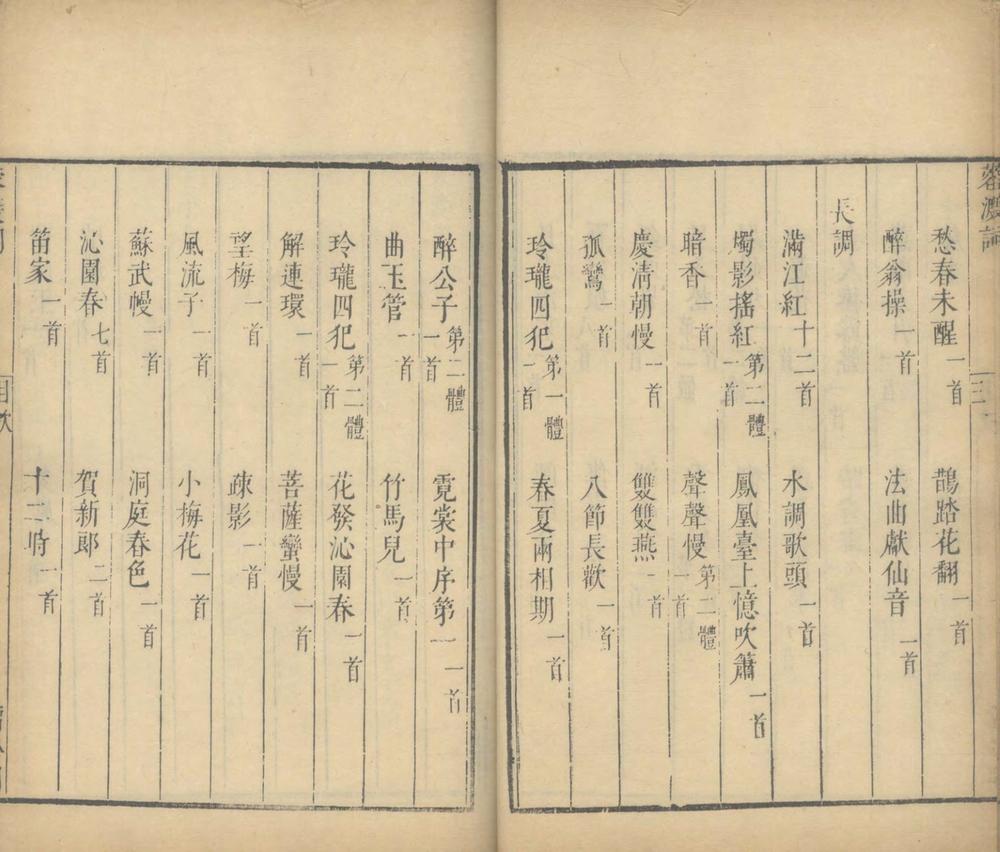 蓉渡詞
三
愁春未醒一首 鵲踏花翻一首
醉翁操一首 法曲獻仙音一首
長調
滿江紅十二首 水調歌頭一首
燭影搖紅第二體一首 鳳凰臺上憶吹簫一首
暗香一首 聲聲慢第二體一首
慶清朝慢一首 雙雙燕一首
孤鸞一首 八節長歡一首
玲瓏四犯第一體一首 春夏兩相期一首
醉公子第二體一首 霓裳中序第一一首
曲玉管一首 竹馬兒一首
玲瓏四犯第二體一首 花發沁園春一首
解連環一首 菩薩蠻慢一首
望梅一首 疎影一首
風流子一首 小梅花一首
蘇武幔一首 洞庭春色一首
沁園春七首 賀新郎二首
笛家一首 十二時一首
目次